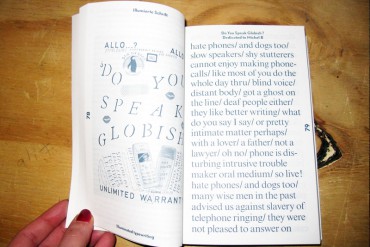 ALLO...?
ALLO
DO YOU
SPEAK
GLOBISH
UNLIMITED WARRANT
78
Do You Speak Globish?
hate phones/ and dogs too/
slow speakers/ shy stutterers
cannot enjoy making phone-
calls/ like most of you do the
whole day thru/ blind voice/
distant body/ got a ghost on
the line/ deaf people either/
they like better writing/ what
do you say I say/ or pretty
intimate matter perhaps/
with a lover/ a father/ not a
lawyer/ oh no/ phone is dis-
turbing intrusive trouble
maker oral medium/ so live!
hate phones/ and dogs too/
many wise men in the past
advised us against slavery of
telephone ringing/ they were
not pleased to answer on
79